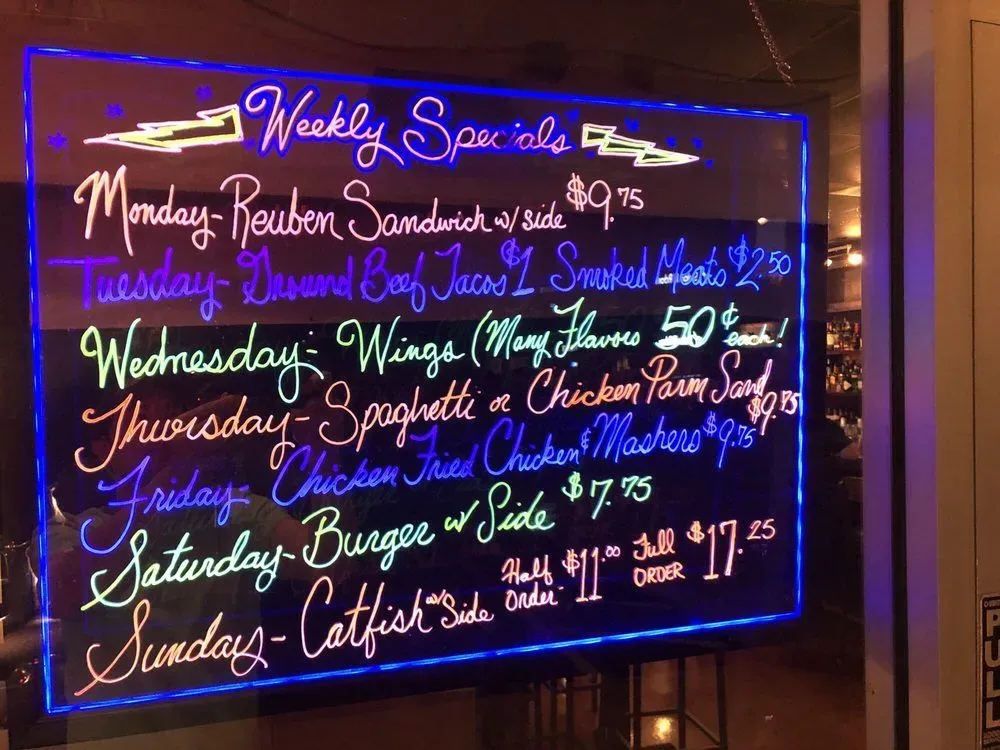 Weekly Specials
Monday- Reuben Sandwich w/ side $9.75
Tuesday- Ground Beef Tacos $1 Smoked Meats $2.50
Wednesday- Wings (Many Flavors 50¢ each!
Thursday- Spaghetti or Chicken Parm Sand
$9.75
Friday- Chicken Fried Chicken & Mashers $9.75
Saturday- Burger w/ Side $7.75
Sunday- Catfish w/ Side Half Order- $11.00 Full ORDER $17.25
P
U
L
L